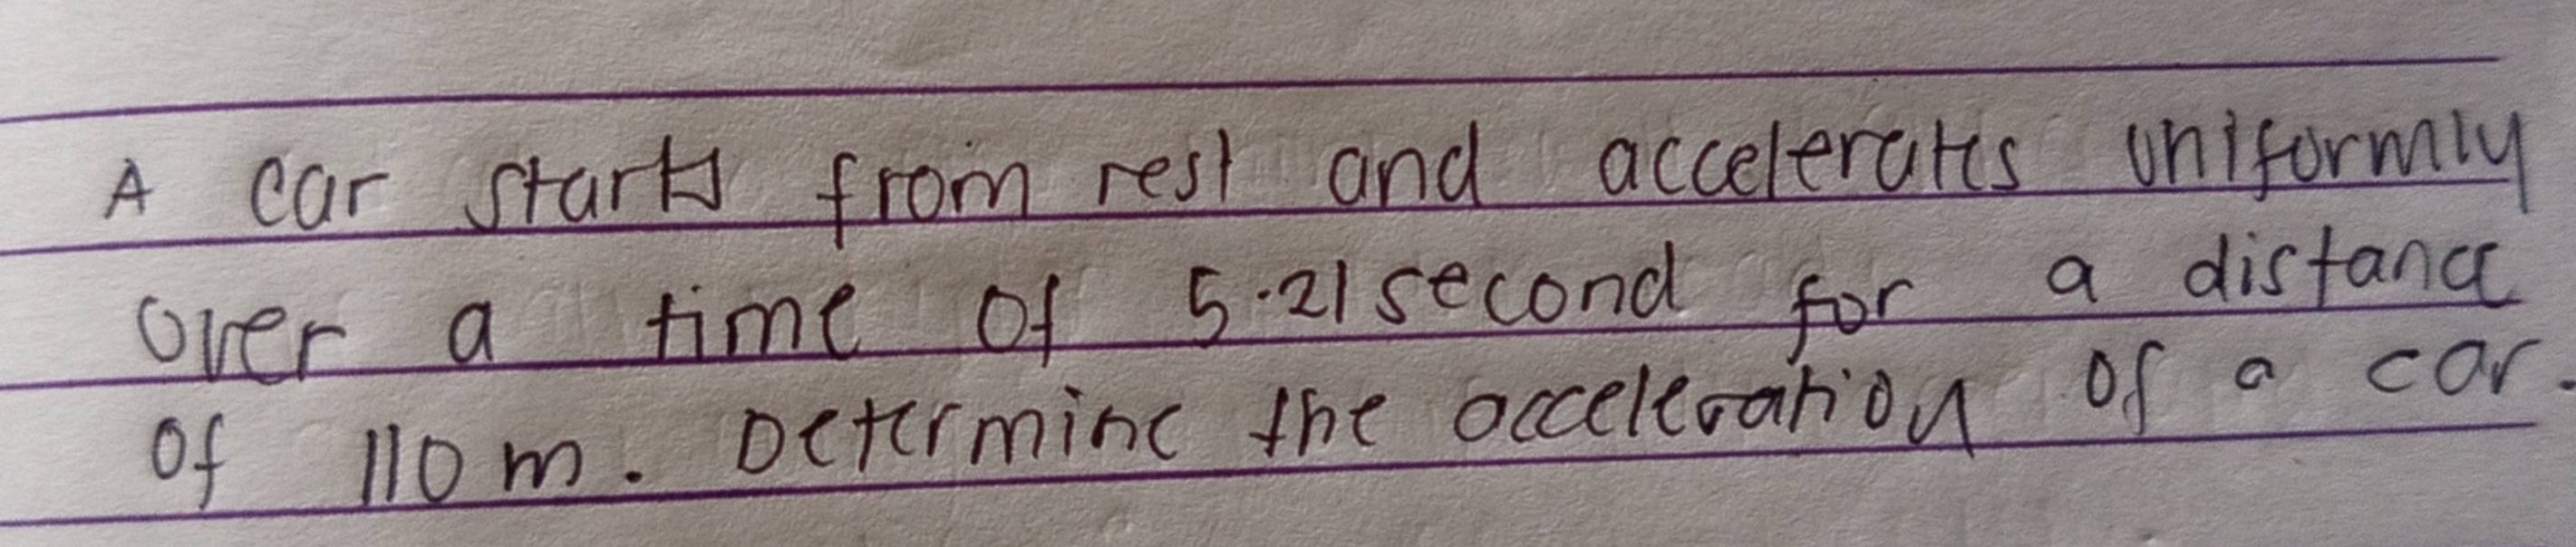 A car starts from rest and accelerates uniformly
over a time of 5.21 second for a distance
of 110 m. Determine the acceleration of a car.